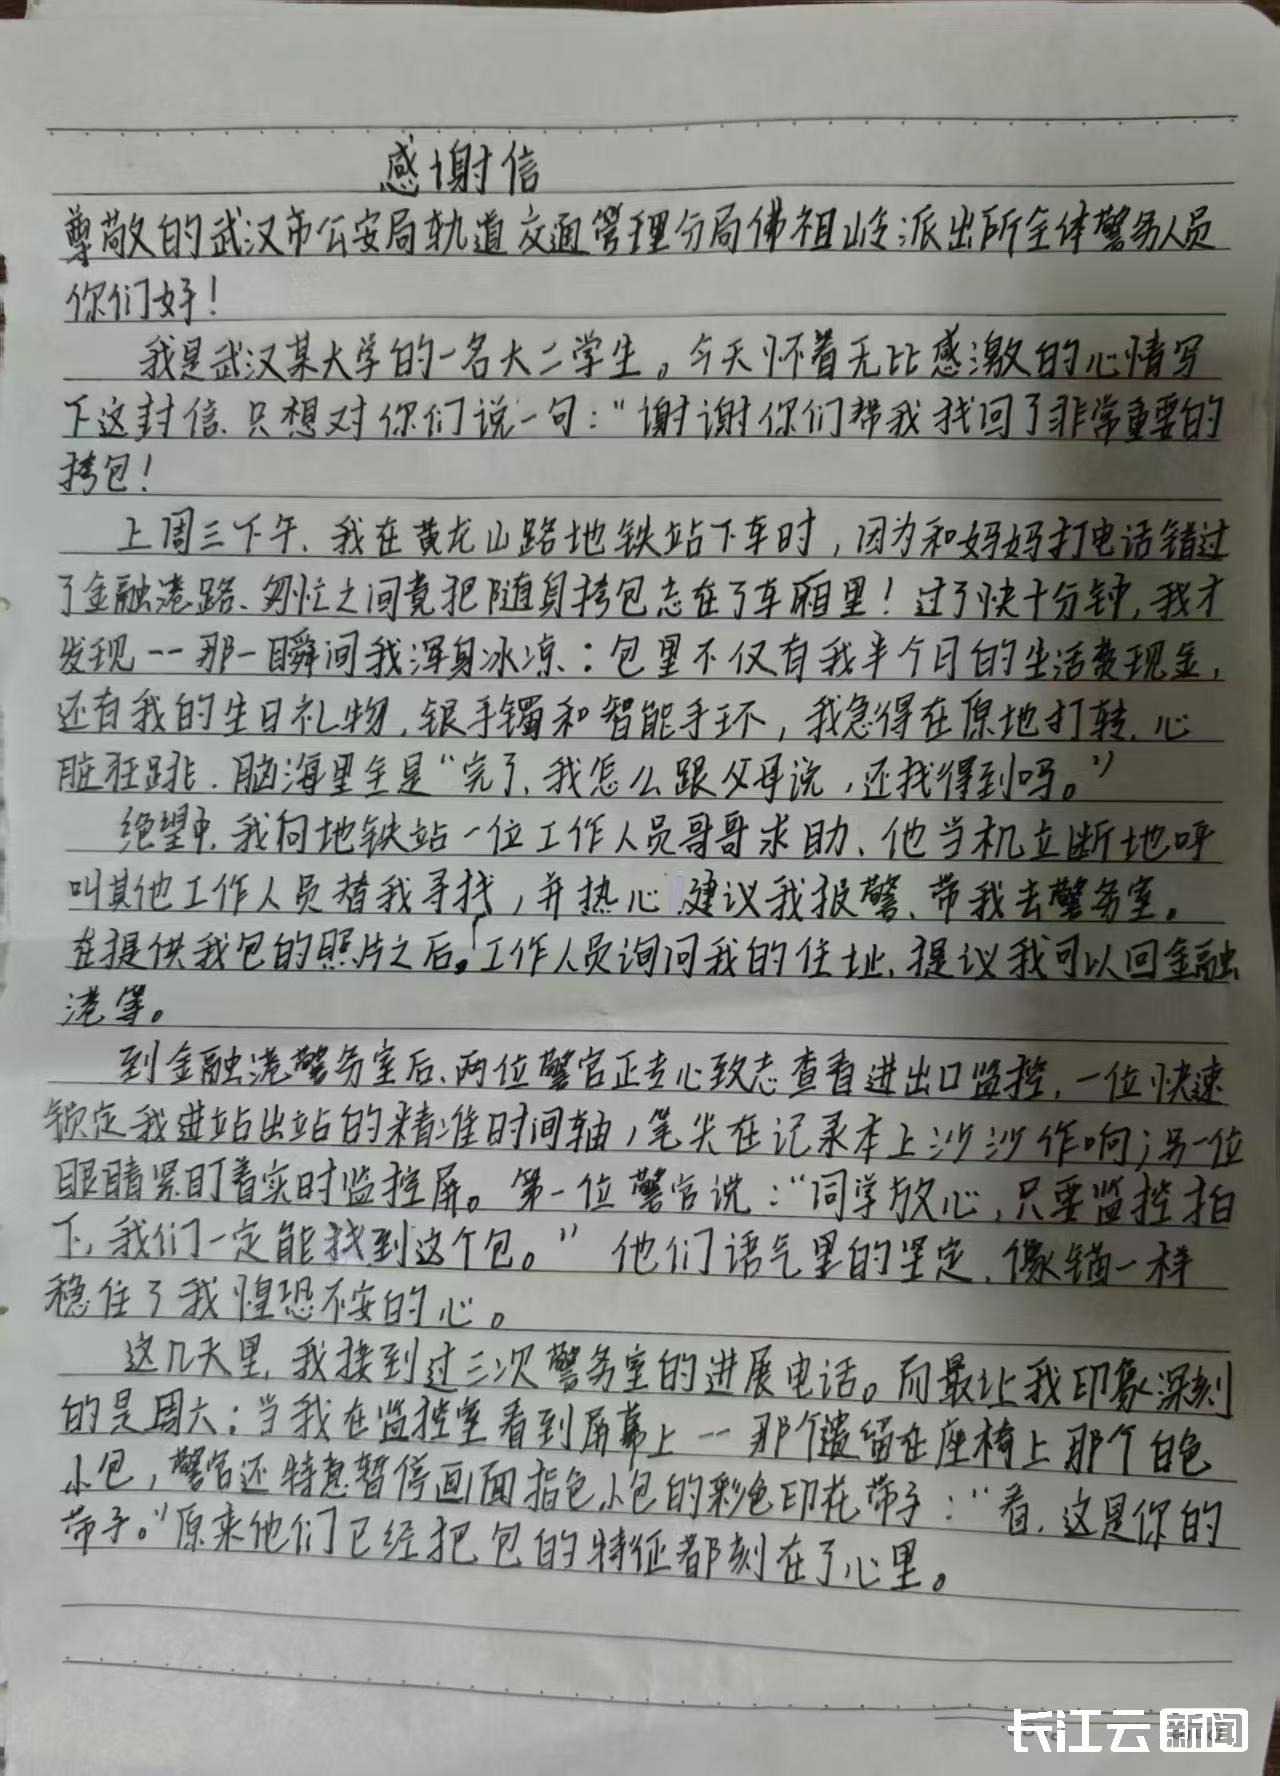 感谢信
尊敬的武汉市公安局轨道交通管理分局佛祖岭派出所全体警务人员
你们好！
我是武汉某大学的一名大二学生。今天怀着无比感激的心情写
下这封信、只想对你们说一句：“谢谢你们帮我找回了非常重要的
挎包！
上周三下午、我在黄龙山路地铁站下车时，因为和妈妈打电话错过
了金融港路、匆忙之间竟把随身挎包忘在了车厢里！过了快十分钟，我才
发现--那一瞬间我浑身冰凉：包里不仅有我半个月的生活费现金，
还有我的生日礼物，银手镯和智能手环，我急得在原地打转、心
脏狂跳、脑海里全是“完了、我怎么跟父母说，还找得到吗。”
绝望中、我向地铁站一位工作人员哥哥求助、他当机立断地呼
叫其他工作人员替我寻找，并热心建议我报警、带我去警务室。
在提供我包的照片之后，工作人员询问我的住址、提议我可以回金融
港等。
到金融港警务室后、两位警官正专心致志查看进出口监控，一位快速
锁定我进站出站的精准时间轴，笔尖在记录本上沙沙作响；另一位
眼睛紧盯着实时监控屏。第一位警官说：“同学放心，只要监控拍
下，我们一定能找到这个包。” 他们语气里的坚定、像锚一样
稳住了我惶恐不安的心。
这几天里，我接到过三次警务室的进展电话。而最让我印象深刻
的是周六：当我在监控室看到屏幕上--那个遗留在座椅上那个白色
小包，警官还特意暂停画面指色小包的彩色印花带子：“看，这是你的
带子。”原来他们已经把包的特征都刻在了心里。
长江云新闻